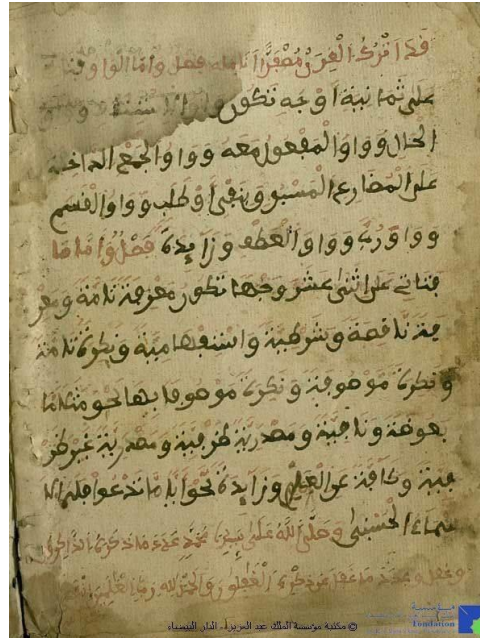 قد اترك القرن مصفرا انامله فصل واما الواو فتاتي
على ثمانية اوجه تكون واو
الحال وواو المفعول معه وواو الجمع الداخلة
على المضارع المسبوق بنفي او طلب وواو القسم
وواو رب وواو العطف وزايدة فصل واما ما
فتاتي على اثنى عشر وجها تكون معرفة تامة ومعر
فة ناقصة وشرطية واستفهامية ونكرة تامة
ونكرة موصوفة ونكرة موصوفا بها نحو مثلا ما
بعوضة ونافية ومصدرية ظرفية ومصدرية غير ظر
فية وكافة عن العمل وزايدة نحو ايا ما تدعوا فله الا
سماء الحسنى وصلى الله على سيدنا محمد عدد ما ذكره الذاكرون
ما غفل عن ذكره الغافلون والحمد لله رب العالمين
© مكتبة مؤسسة الملك عبد العزيز، الدار البيضاء
مؤسسة
Fondation